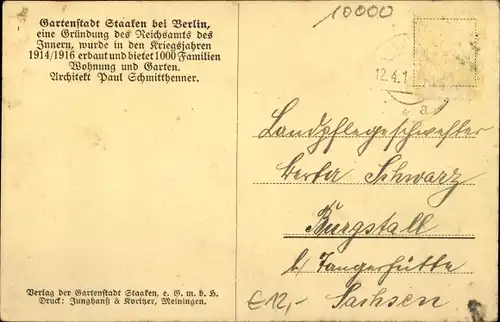 Gartenstadt Staaken bei Berlin,
eine Gründung des Reichsamts des
Innern, wurde in den Kriegsjahren
1914/1916 erbaut und bietet 1000 Familien
Wohnung und Garten.
Architekt Paul Schmitthenner.
10000
12.4.1
a
Landpflegeschwester
Berta Schwarz
Burgstall
b/ Tangerhütte
Sachsen
€12,-
Verlag der Gartenstadt Staaken, e. G. m. b. H.
Druck: Junghanß & Koritzer, Meiningen.